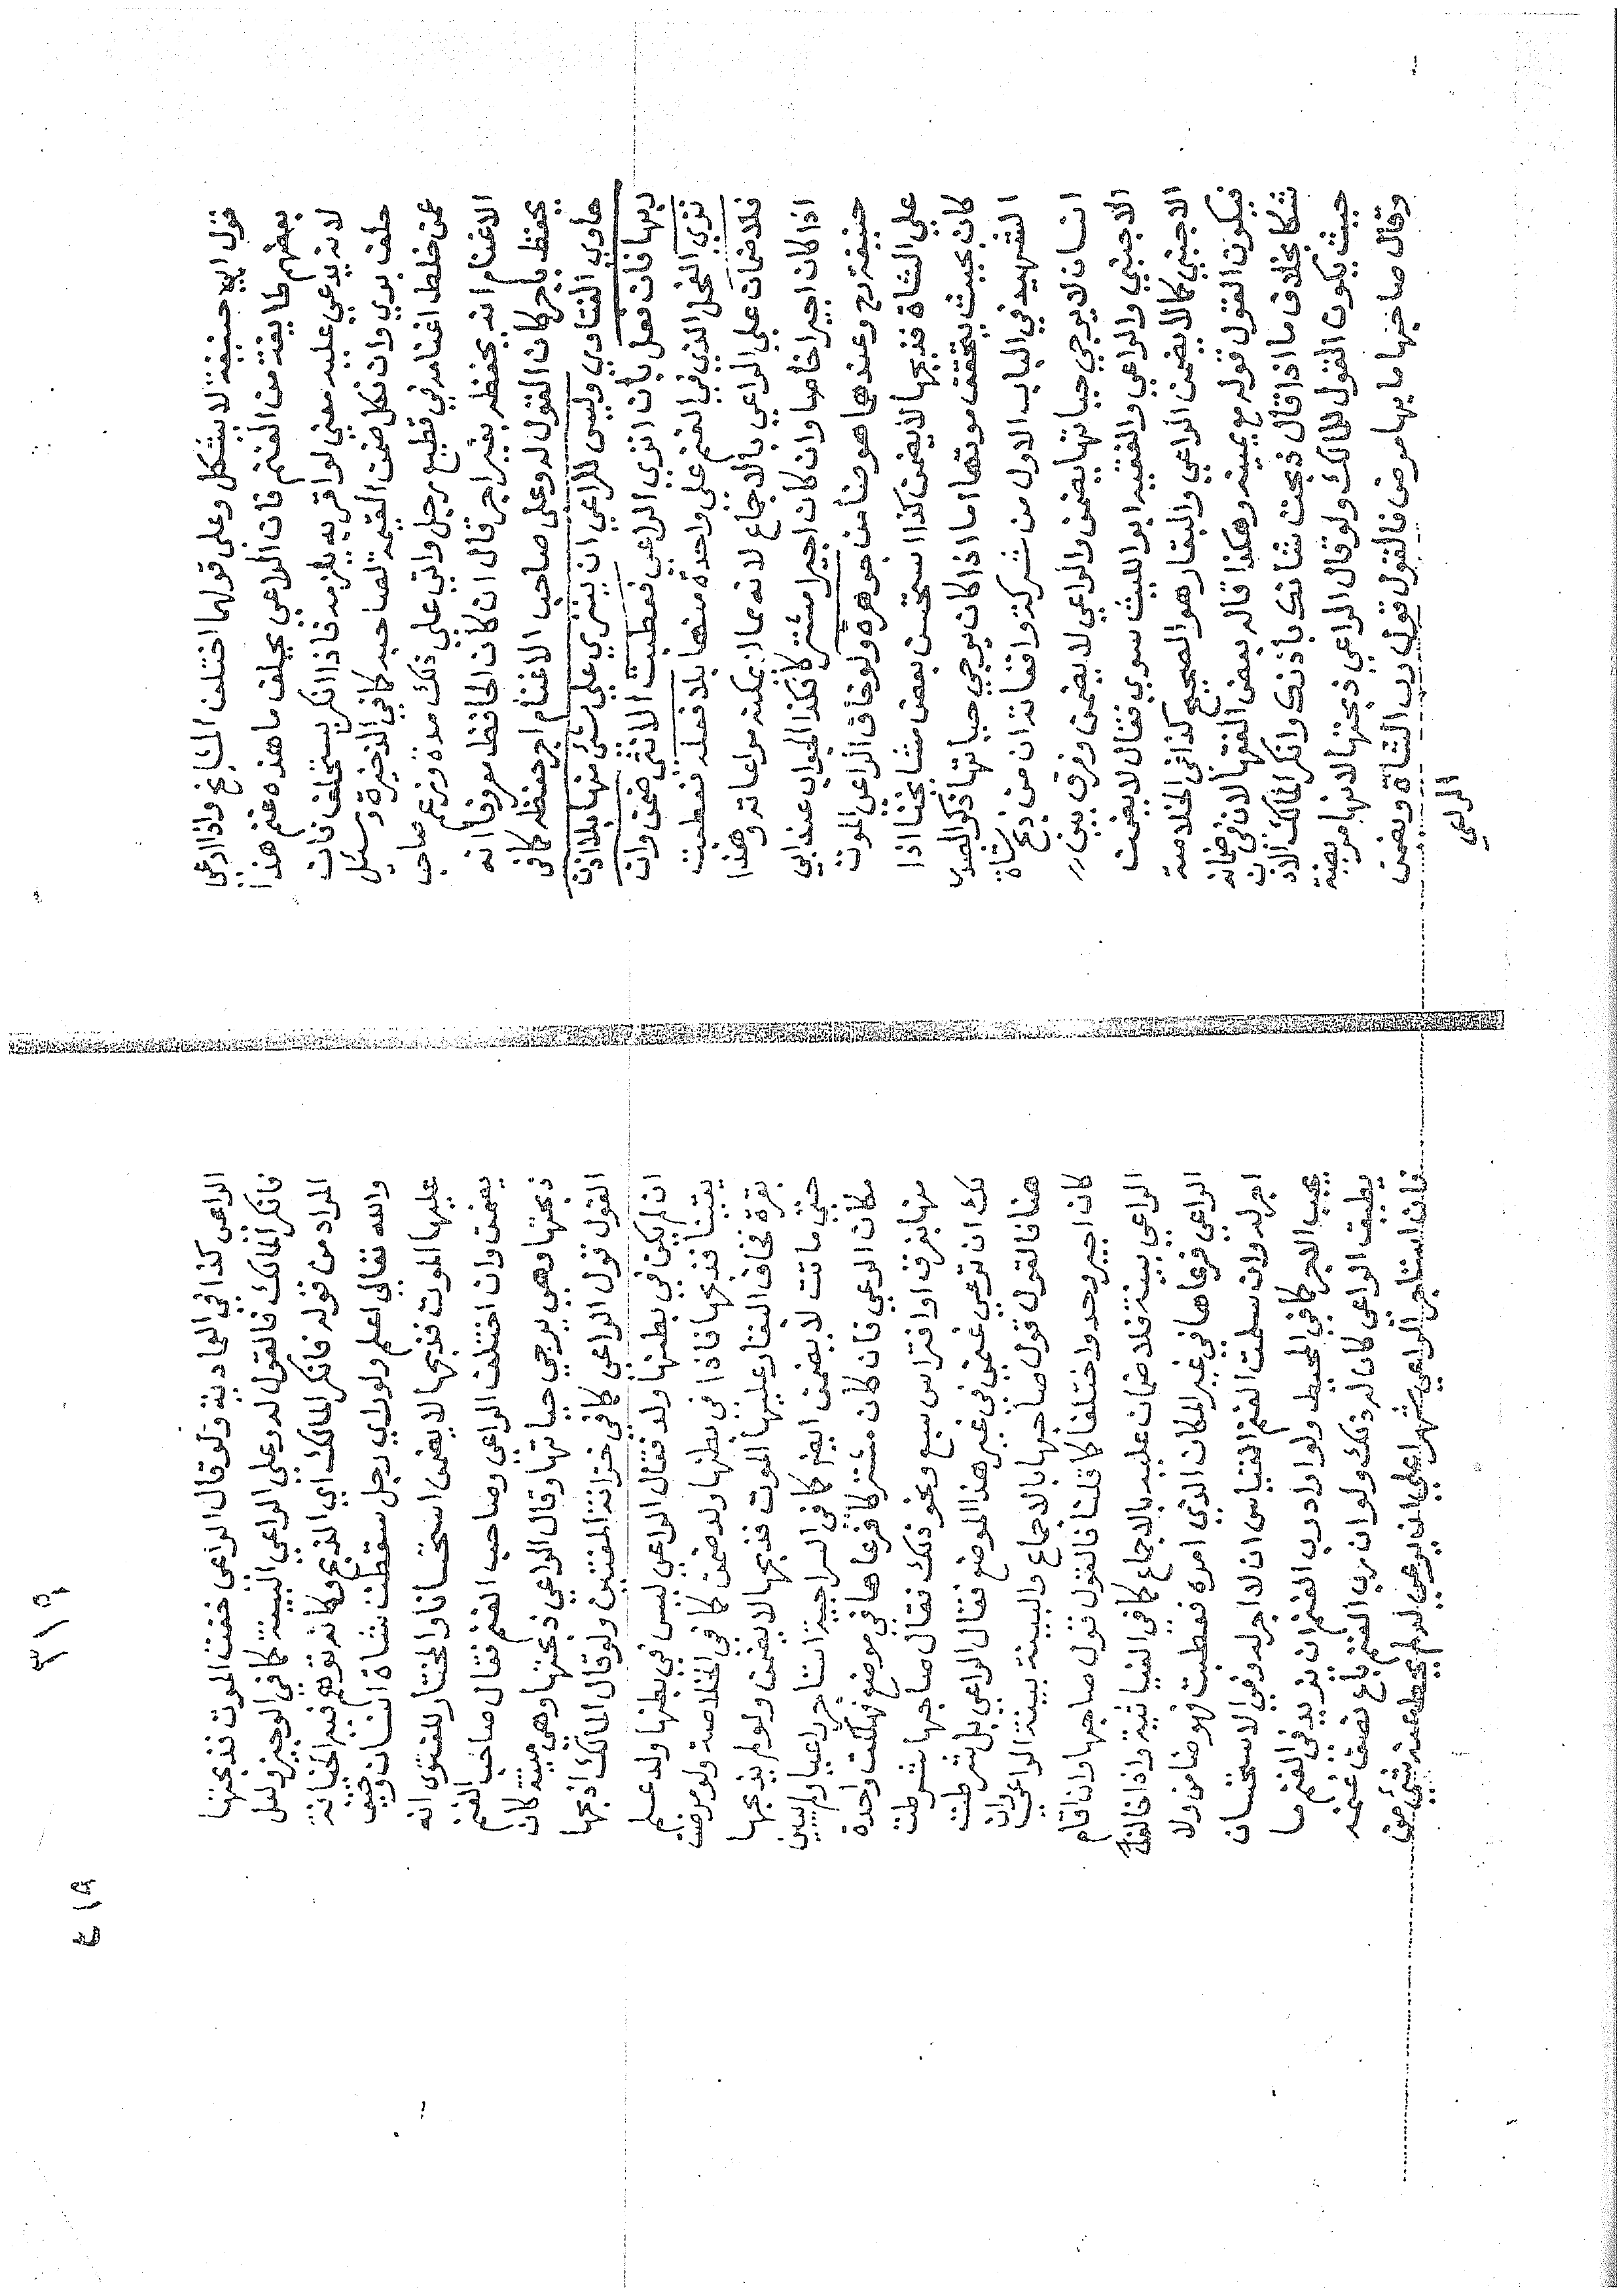 قول ابي حنيفة لا يشكل وعلى قولهما اختلف المشايخ واذا ادعى
بعضهم طايفة من الغنم فان الراعي يحلف ما هذه غنم هذا
لانه يدعي عليه معني لو اقر به يلزمه فاذا انكر يستحلف فان
حلف بري وان نكل ضمن القيمة لصاحبه كافي الذخيرة وسئل
عمن خلط اغنامه في قطيع رجل واتي علي ذلك مدة وزعم صاحب
الاغنام انه يحفظه بغير اجر قال ان كان الحافظ معروفا انه
يحفظ باجر كان القول له وعلى صاحب الاغنام اجر حفظه كافى
حاوي الفتاوي وليس للراعي ان ينزي علي شئ منها بلا اذن
ربها فان فعل بان انزي الراعي فعطبت الانثى ضمن وان
نزي الفحل الذي في الغنم علي واحدة منها بلا فعله فعطبت
فلا ضمان علي الراعي بالاجماع لانه مما لا يمكنه مراعاته وهذا
اذا كان اجيرا خاصا وان كان اجيرا مشتركا فكذا الجواب عند ابي
حنيفة رح وعندهما هو ضامن جوهره ولو خاف الراعى الموت
علي الشاة فذبحها لا يضمن كذا استحسن بعض مشايخنا اذا
كان بحيث يتحقق موتها اما اذا كان يرجي حياتها ذكر الصدر
الشهيد في الباب الاول من شركة واقعاته ان من ذبح شاة
انسان لا يرجي حياتها يضمن والراعي لا يضمن وفرق بين
الاجنبي والراعي والفقيه ابو الليث سوي فقال لا يضمن
الاجنبي كالا يضمن الراعي والبقار هو الصحيح كذا في الخلاصة
فيكون القول قوله مع يمينه وهكذا قاله بعض الفقها لان في ضمانه
شكا بخلاف ما اذا قال ذبحت شاتك باذنك وانكر المالك الاذن
حيث يكون القول للمالك ولو قال الراعي ذبحتها لانها مريضة
وقال صاحبها ما بها مرض فالقول قول رب الشاة ويضمن
الراعي
الراعى كذا في العمادية ولو قال الراعى خفت الموت فذبحتها
فانكر المالك فالقول له وعلي الراعي البينة كافي الوجيز ولعل
المراد من قوله فانكر المالك اي الذبح وكانه توهم فيه الخيانة
والله تعالي اعلم ولو راي رجل سقطت شاة انسان وخيف
عليها الموت فذبحها لا يضمن استحسانا والمختار للفتوى انه
يضمن وان اختلف الراعي وصاحب الغنم فقال صاحب الغنم
ذبحتها وهي يرجي حياتها وقال الراعي ذبحتها وهي ميتة كان
القول قول الراعي كافي خزانة المفتين ولو قال المالك اذبحها
ان لم يكن في بطنها ولد فقال الراعي ليس في بطنها ولد علم
يقينا فذبحها فاذا في بطنها ولد ضمن كا في الخلاصة ولو مرضت
بقرة فخاف البقار عليها الموت فذبحها لا يضمن ولو لم يذبحها
حتي ماتت لا يضمن ايضا كا فى السراجية استاجر راعيا ولم يبين
مكان الرعي فان كان مشتركا فرعاها في موضع فهلكت واحدة
منها بغرق او افتراس سبع ونحو ذلك فقال صاحبها شرطت
لك ان ترعي غنمي في غير هذا الموضع فقال الراعي بل شرطت
هنا فالقول قول صاحبها بالاجماع والبينة بينة الراعي وان
كان اجير وحد واختلفا كا قلنا فالقول قول صاحبها وان اقام
الراعي بينة فلا ضمان عليه بالاجماع كا في الغياثية واذا خالف
الراعي فرعاها في غير المكان الذي امره فعطبت فهو ضامن ولا
اجر له وان سلمت الغنم القياس ان لا اجر له وفي الاستحسان
يجب الاجر كافي المحيط ولو اراد رب الغنم ان يزيد في الغنم ما
يطيق الراعي كان له ذلك ولو ان رب الغنم باع نصف غنمه
فان استاجر الراعي شهرا علي ان يرعي له لم يحط عنه شي من
٣١٩
٤١٩